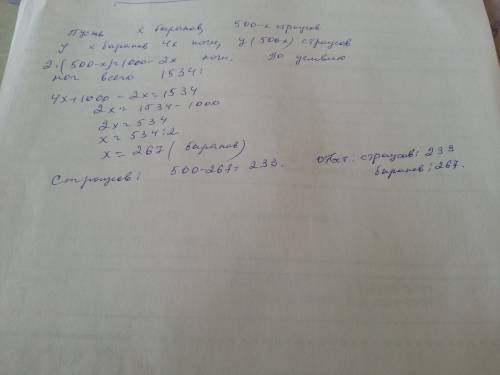 Пусть x баранов, 500-x страусов
У x баранов 4x ноги, у (500-x) страусов
2·(500-x)=1000-2x ноги. По условию
ног всего 1534:
4x+1000-2x=1534
2x=1534-1000
2x=534
x=534:2
x=267 (баранов)
Страусов: 500-267=233.
Ответ: страусов: 233
баранов: 267.